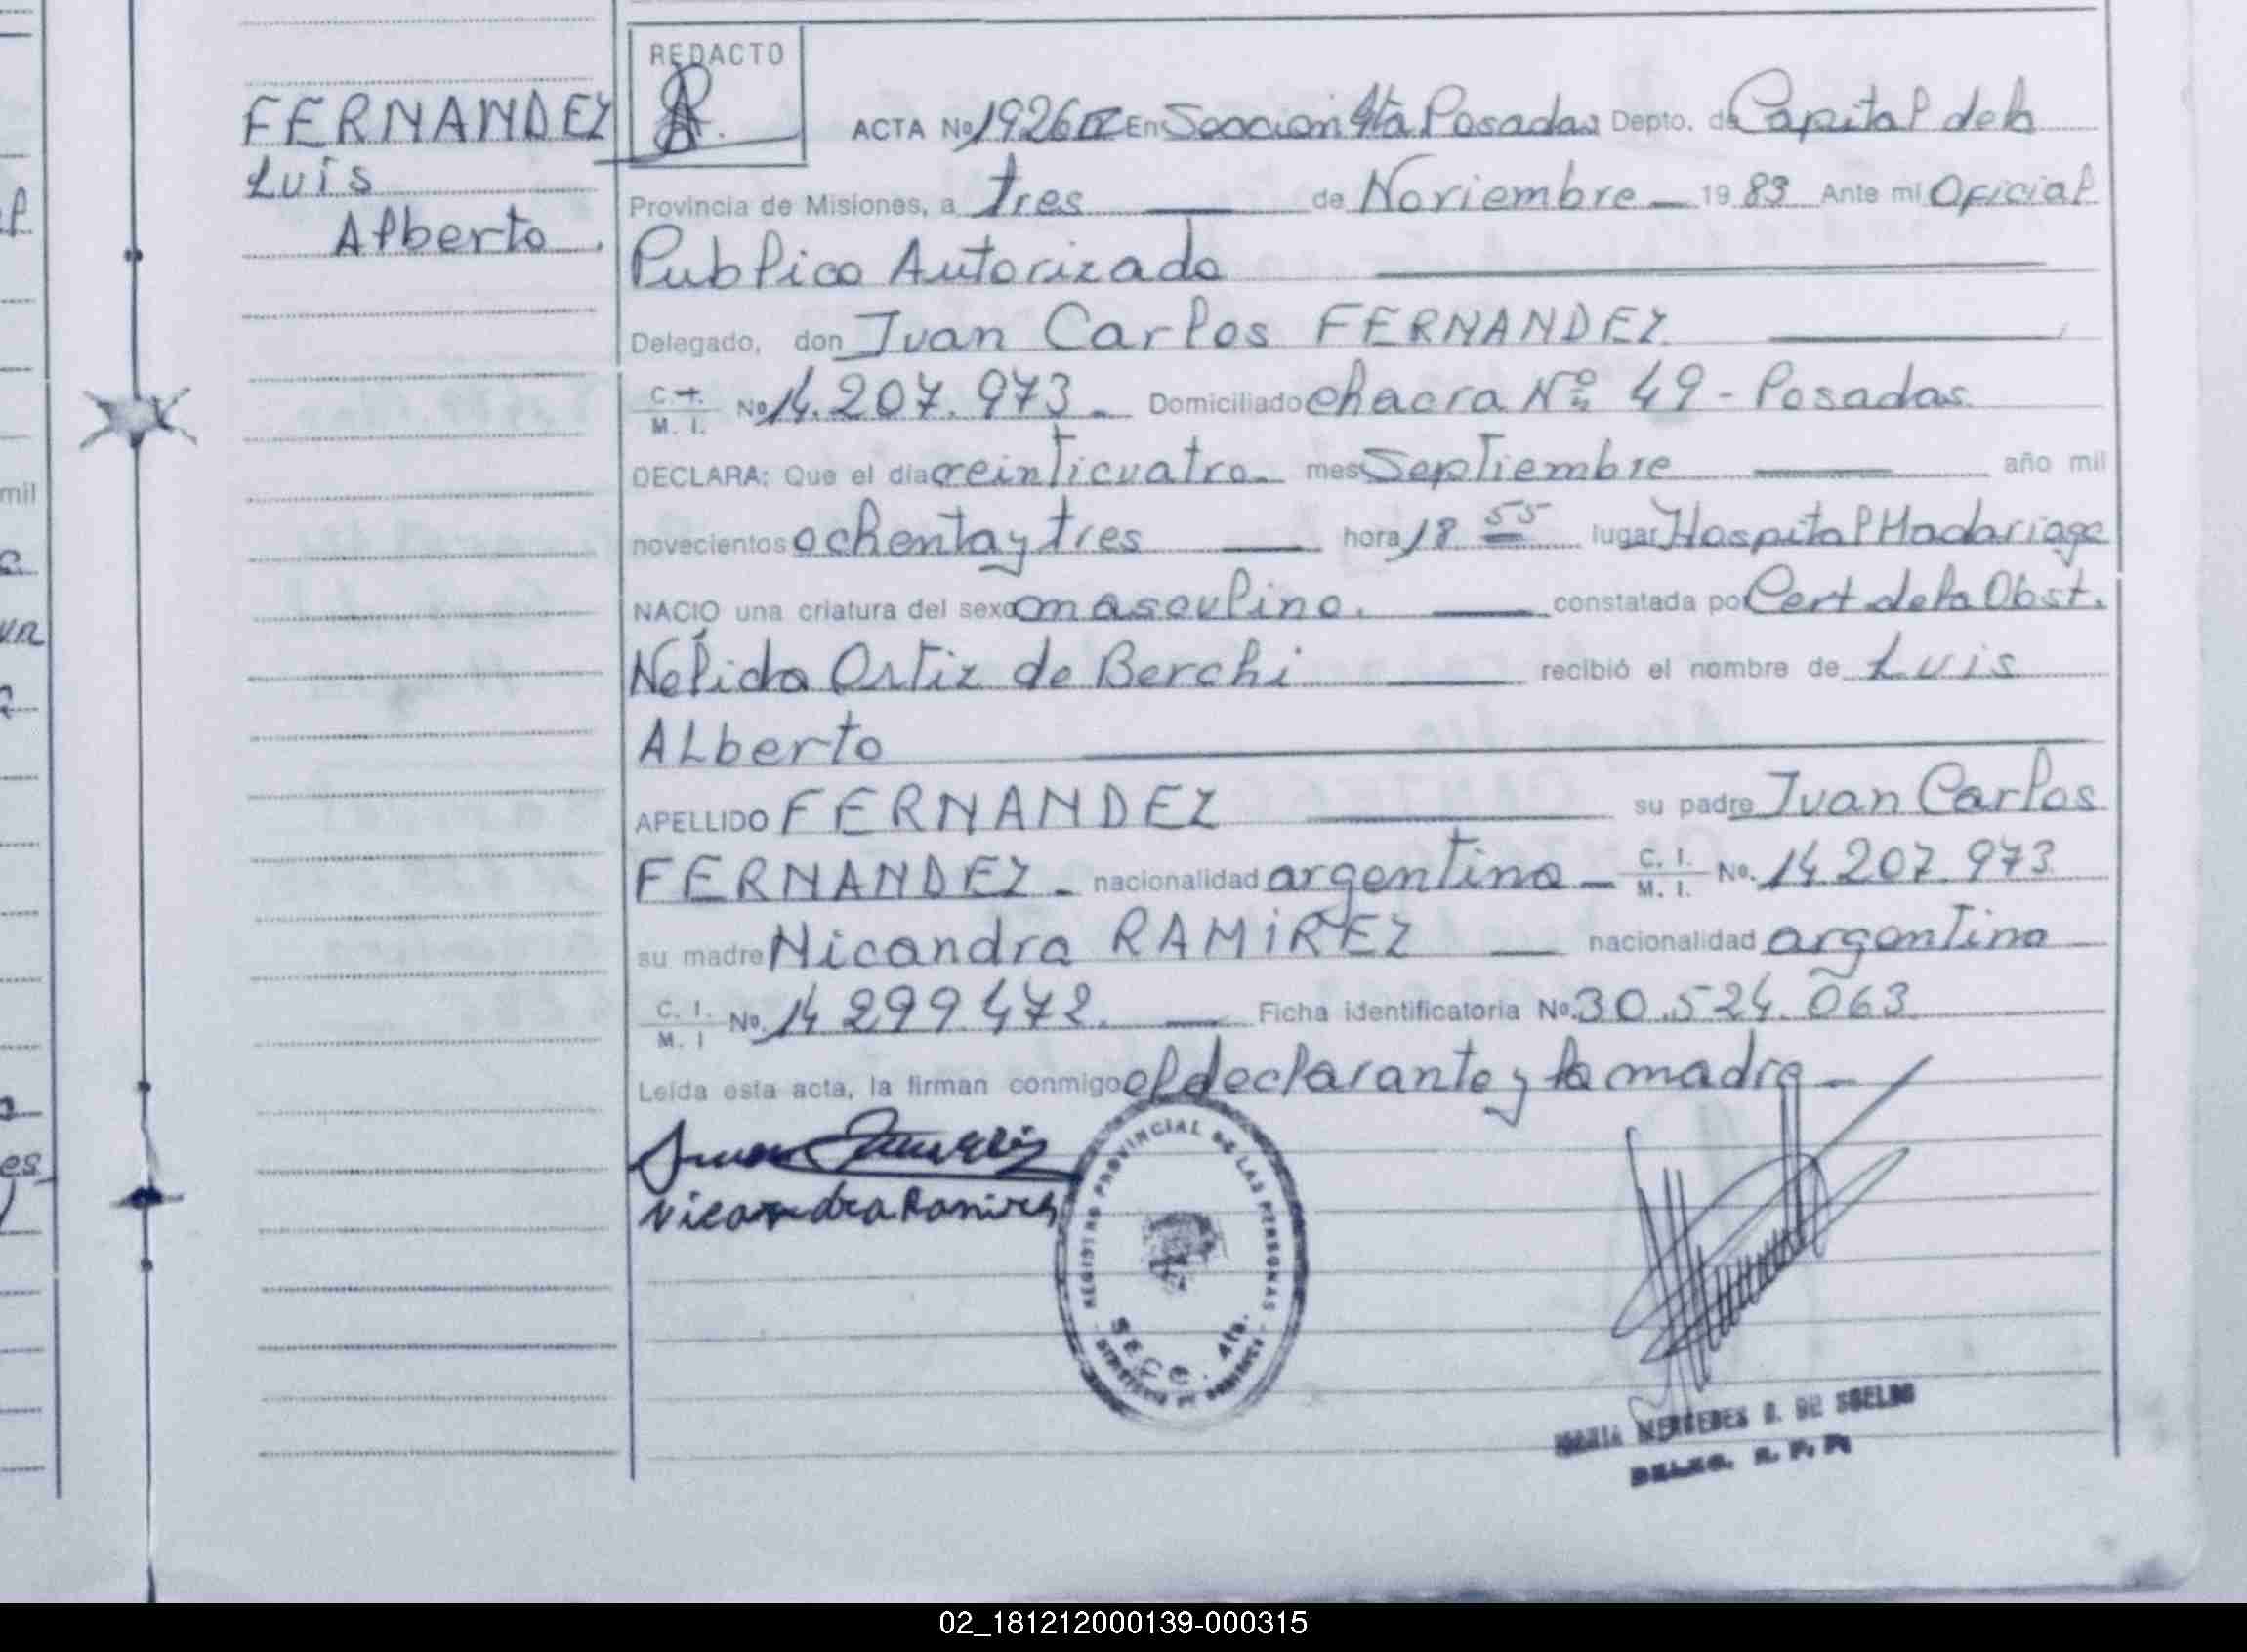 REDACTO
FERNANDEZ
Luis
Alberto.
ACTA No 1926 En Seccion 4ta Posadas Depto. de Capital de la
Provincia de Misiones, a tres de Noviembre 19 83 Ante mi Oficial
Publico Autorizado
Delegado, don Juan Carlos FERNANDEZ
C. I. M. I. No 14.207.973. Domiciliado chacra Nº 49 - Posadas.
DECLARA: Que el día veinticuatro. mes Septiembre año mil
novecientos ochenta y tres hora 18 55 lugar Hospital Madariaga
NACIO una criatura del sexo masculino. constatada por Cert de la Obst.
Nélida Ortiz de Berchi recibió el nombre de Luis
Alberto
APELLIDO FERNANDEZ su padre Juan Carlos
FERNANDEZ - nacionalidad argentina - C. I. M. I. No. 14.207.973
su madre Nicandra RAMIREZ nacionalidad argentina
C. I. M. I No. 14.299.472. Ficha identificatoria No. 30.524.063
Leída esta acta, la firman conmigo el declarante y la madre -
Nicandra Ramirez
REGISTRO PROVINCIAL DE LAS PERSONAS
SECC. 4ta.
MARIA MERCEDES DE
DELEG. R. P. P.
mil
es
02_181212000139-000315